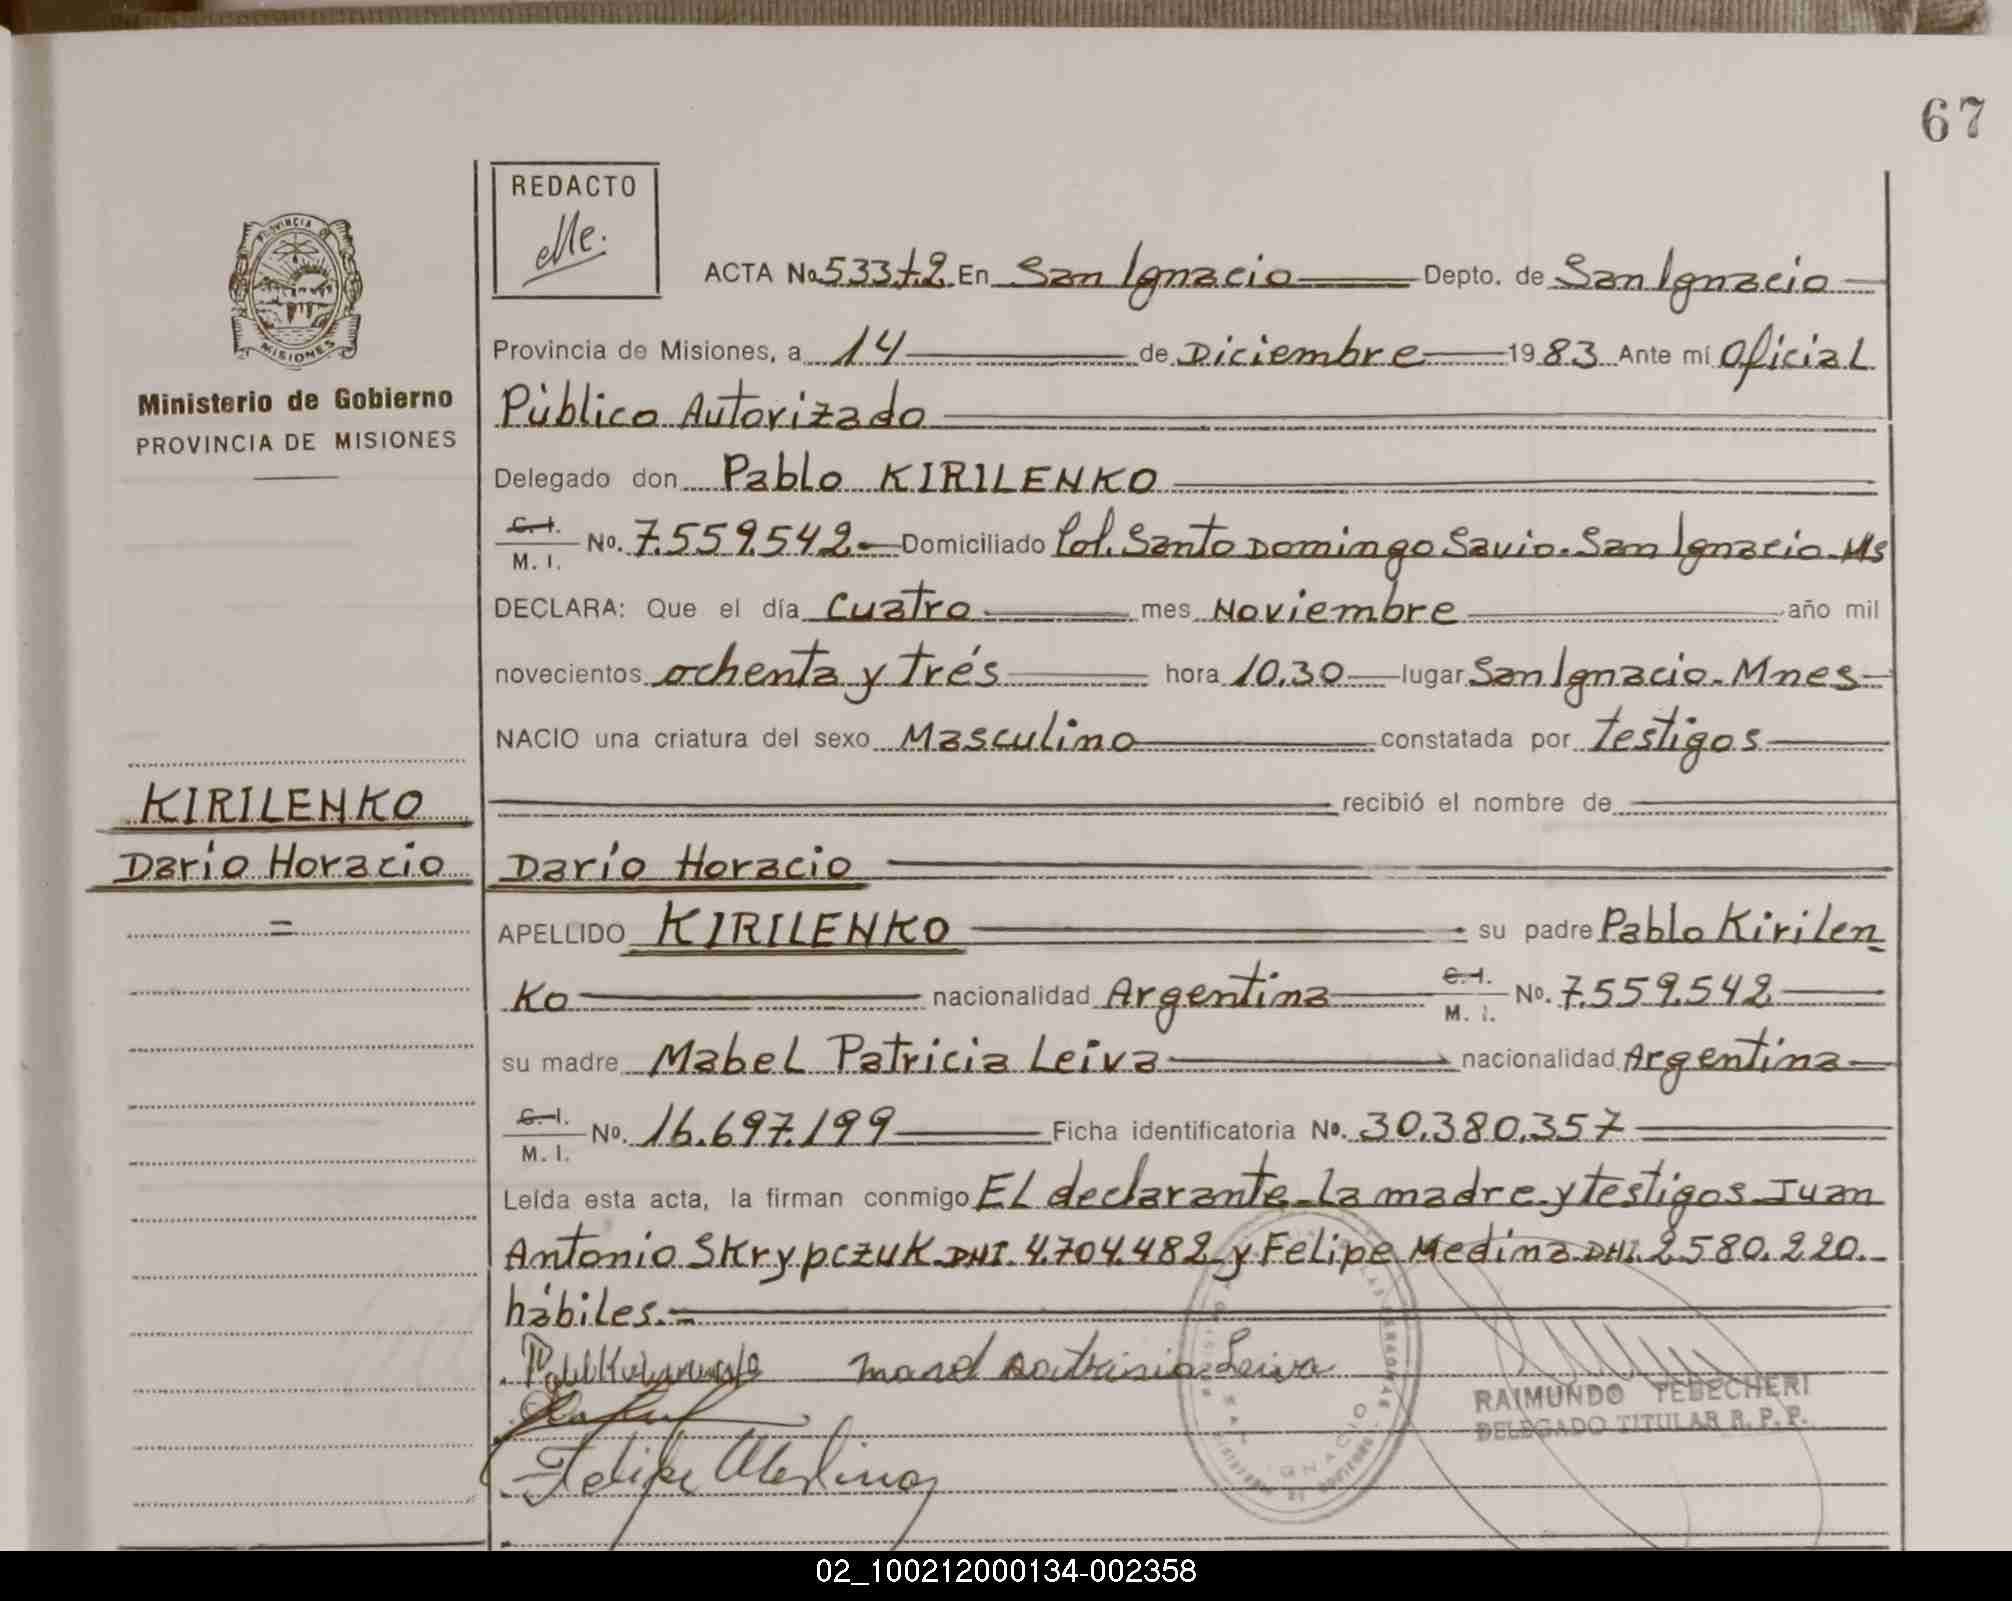 67
REDACTO
PROVINCIA DE
MISIONES
ACTA No 533 t.2 En San Ignacio Depto. de San Ignacio
Provincia de Misiones, a 14 de Diciembre 1983 Ante mí Oficial
Ministerio de Gobierno
PROVINCIA DE MISIONES
Público Autorizado
Delegado don Pablo KIRILENKO
C.I. M.I. No. 7.559.542 Domiciliado Col. Santo Domingo Savio. San Ignacio-Ms
DECLARA: Que el día cuatro mes Noviembre año mil
novecientos ochenta y trés hora 10.30 lugar San Ignacio. Mnes
NACIO una criatura del sexo Masculino constatada por testigos
recibió el nombre de
KIRILENKO
Darío Horacio
Darío Horacio
=
APELLIDO KIRILENKO su padre Pablo Kirilen
Ko nacionalidad Argentina C.I. M.I. No. 7.559.542
su madre Mabel Patricia Leiva nacionalidad Argentina
C.I. M.I. No. 16.697.199 Ficha identificatoria No. 30.380.357
Leída esta acta, la firman conmigo El declarante-la madre y testigos Juan
Antonio Skrypczuk DNI. 4.704.482 y Felipe Medina DNI. 2.580.220.
hábiles.=
Leiva
Felipe Medina
RAIMUNDO TEBECHERI
DELEGADO TITULAR R. P. P.
SAN IGNACIO
02_100212000134-002358